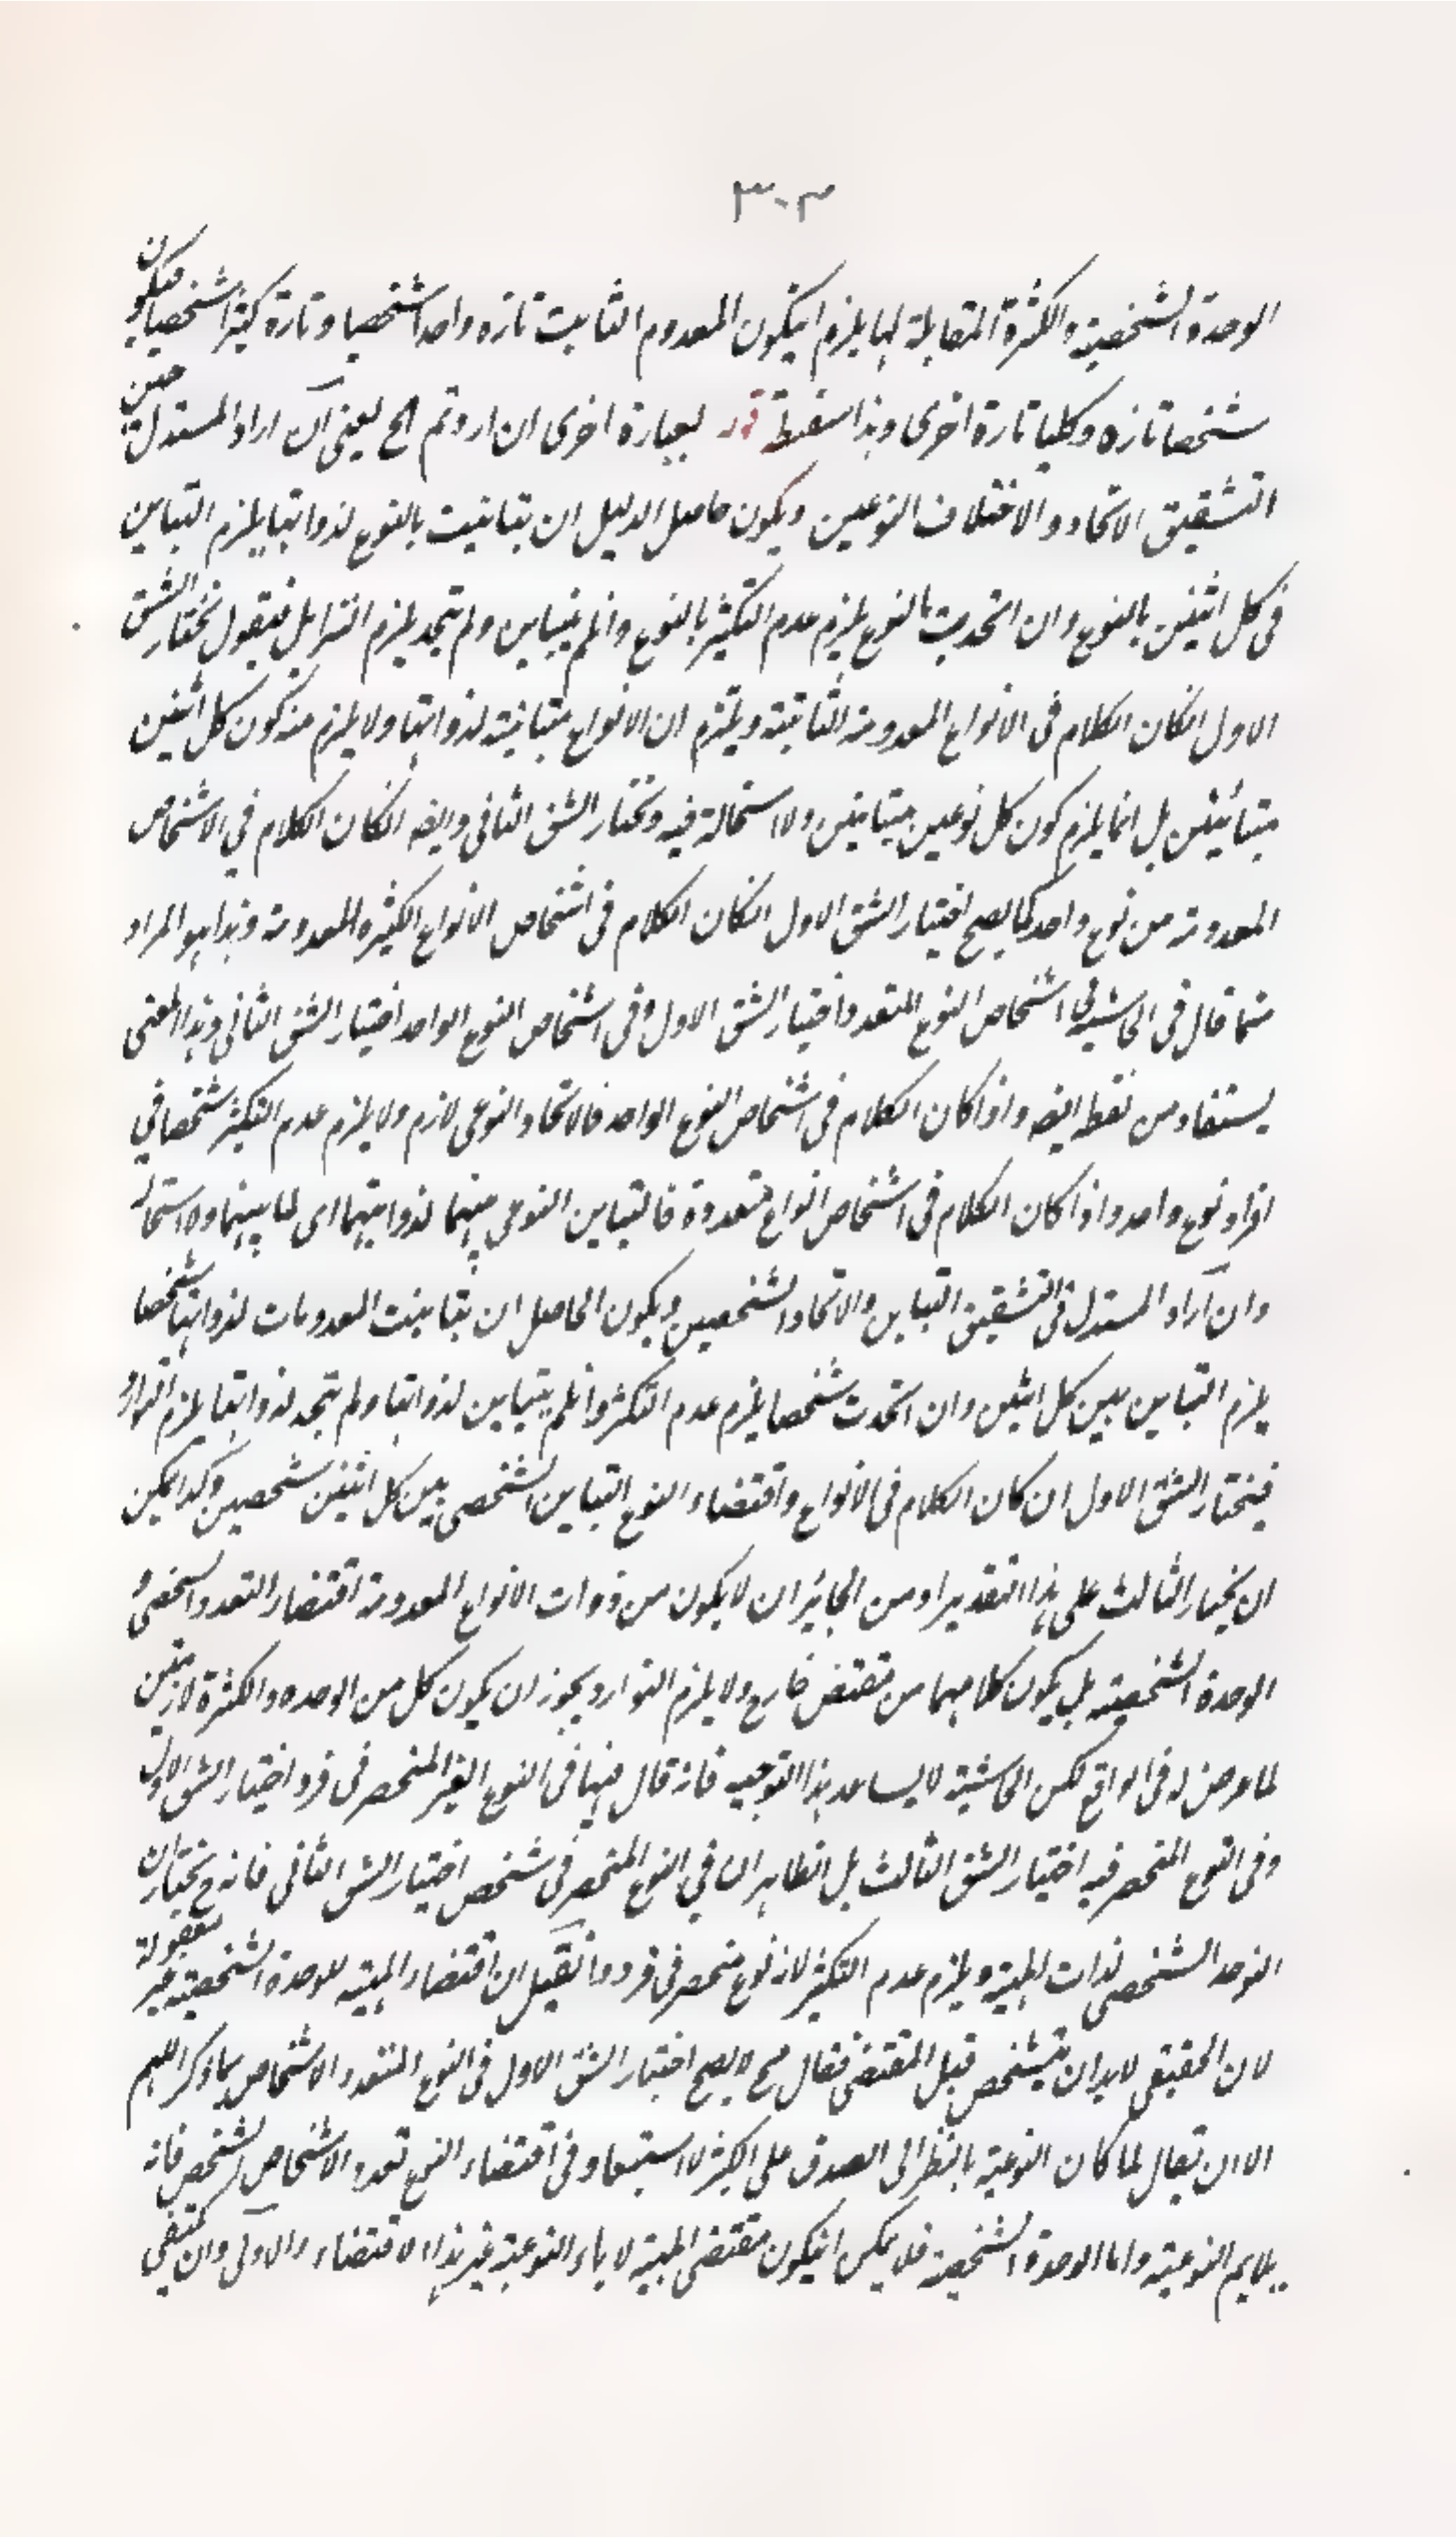 ٣٠٣
الوحدة الشخصية والكثرة المقابلة لها يلزم ان يكون المعدوم الثابت تارة واحدا شخصيا وتارة كثيرا شخصيا فيكون
شخصا تارة وكليا تارة اخرى وهذا سفسطة قوله بعبارة اخرى ان اردتم الخ يعنى ان اراد المستدل حين
التشقيق الاتحاد والاختلاف النوعين ويكون حاصل الدليل ان تباينت بالنوع لذواتها يلزم التباين
فى كل اثنين بالنوع وان اتحدت بالنوع يلزم عدم التكثر بالنوع وانلم يتباين ولم يتحد يلزم التزايل فنقول نختار الشق
الاول انكان الكلام فى الانواع المعدومة الثابتة ويلتزم ان الانواع متباينة لذواتها ولا يلزم منه كون كل اثنين
متباينين بل انما يلزم كون كل نوعين متباينين ولا استحالة فيه ونختار الشق الثانى وايضه انكان الكلام في الاشخاص
المعدومة من نوع واحد كما يصح اختيار الشق الاول انكان الكلام فى اشخاص الانواع الكثيرة المعدومة وهذا هو المراد
مما قال فى الحاشية فى اشخاص النوع المتعدد اختيار الشق الاول وفى اشخاص النوع الواحد اختيار الشق الثانى وهذا المعنى
يستفاد من لفظ ايضه واذا كان الكلام فى اشخاص النوع الواحد فالاتحاد النوعى لازم ولا يلزم عدم التكثر شخصا في
افراد نوع واحد واذا كان الكلام فى اشخاص انواع متعددة فالتباين النوعى بينهما لذواتيهما اى لما بينهما ولا استحالة
وان اراد المستدل فى التشقيق التباين والاتحاد الشخصيين ويكون الحاصل ان تباينت المعدومات لذواتها شخصا
يلزم التباين بين كل اثنين وان اتحدت شخصا يلزم عدم التكثر وانلم يتباين لذواتها ولم يتحد لذواتها يلزم التوارد
فيختار الشق الاول ان كان الكلام فى الانواع واقتضاء النوع التباين الشخصى بين كل اثنين شخصين وكذا يمكن
ان يختار الثالث على هذا التقدير اذ من الجائز ان لا يكون من ذوات الانواع المعدومة اقتضاء التعدد الشخصى و
الوحدة الشخصية بل يكون كلاهما من مقتض خارج ولا يلزم التوارد ويجوز ان يكون كل من الوحدة والكثرة لازمتين
لما عرض له فى الواقع لكن الحاشية لا يساعد هذا التوجيه فانه قال فيها فى النوع الغير المنحصر فى فرد اختيار الشق الاول
وفى النوع المنحصر فيه اختيار الشق الثالث بل الظاهر ان في النوع المنحصر فى شخص اختيار الشق الثانى فانه ح يختار ان
التوحد الشخصى لذات المهية ويلزم عدم التكثر لانه نوع منحصر فى فرد وان قيل ان اقتضاء المهية للوحدة الشخصية غير معقولة
لان الحقيقى لابد ان يتشخص قبل المقتضى فقال فح لا يصح اختيار الشق الاول فى النوع المتعدد الاشخاص بما ذكر اللهم
الا ان يقال لما كان النوعية بالنظر الى الصدق على الكثير لا استبعاد فى اقتضاء النوع تعدد الاشخاص لتشخص فانه
يلايم النوعية واما الوحدة الشخصية فلا يمكن ان يكون مقتضى المهية لاباء النوعية غير هذا الاقتضاء والاولى وان يكتفى